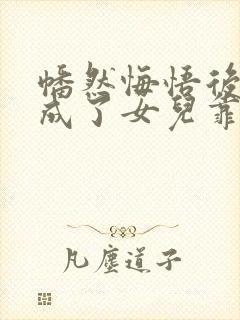 幡然悔悟後
成了女兒靠
凡塵道子